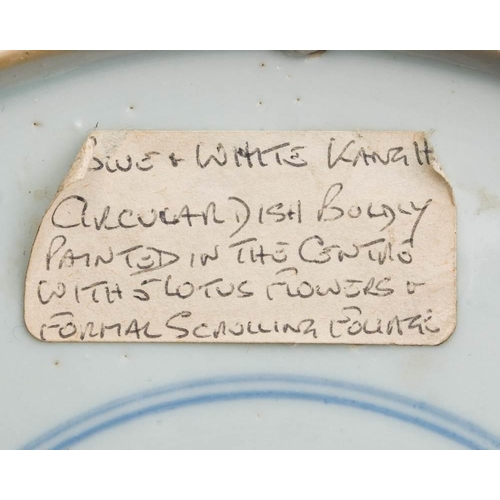 BLUE + WHITE KANGH
CIRCULAR DISH BOLDLY
PAINTED IN THE CENTRE
WITH 5 LOTUS FLOWERS +
FORMAL SCROLLING FOLIAGE